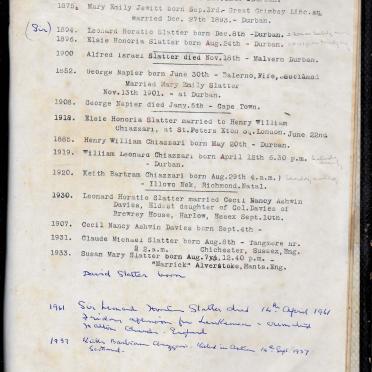 Durban.
1875. Mary Emily Jewitt born Sep.3rd- Great Grimsby Linc.
married Dec. 27th 1893. - Durban.
(Sir) 1894. Leonard Horatio Slatter born Dec.8th -Durban.
1896. Elsie Honoria Slatter born Aug.24th - Durban.
1900 Alfred Israel Slatter died Nov.18th - Malvern Durban.
1852. George Napier born June 30th - Falerno, Fife, Scotland
Married Mary Emily Slatter
Nov.13th 1901. - at Durban.
1908. George Napier died Jany.5th - Cape Town.
1918. Elsie Honoria Slatter married to Henry William
Chiazzari, at St.Peters Eton St. London. June 22nd
1885. Henry William Chiazzari born May 20th - Durban.
1919. William Leonard Chiazzari born April 12th 6.30 p.m.
- Durban.
1920. Keith Bartram Chiazzari born Aug.29th 4 a.m.)
- Illovo Nek, Richmond.Natal.
1930. Leonard Horatio Slatter married Cecil Nancy Ashwin
Davies, Eldest daughter of Col.Davies of
Brewrey House, Harlow, Essex Sept.10th.
1907. Cecil Nancy Ashwin Davies born Sept.4th -
1931. Claude Michael Slatter born Aug.8th - Tangmere nr.
@ 2 a.m. Chichester, Sussex, Eng.
1933. Susan Mary Slatter born Aug. 12.40 p.m. -
"Marrick" Alverstoke, Hants.Eng.
David Slatter born
1961 Sir Leonard Horatio Slatter died 14th April 1961
Friday afternoon
England
1937 Killed in Action 14th Sept. 1937
Scotland.